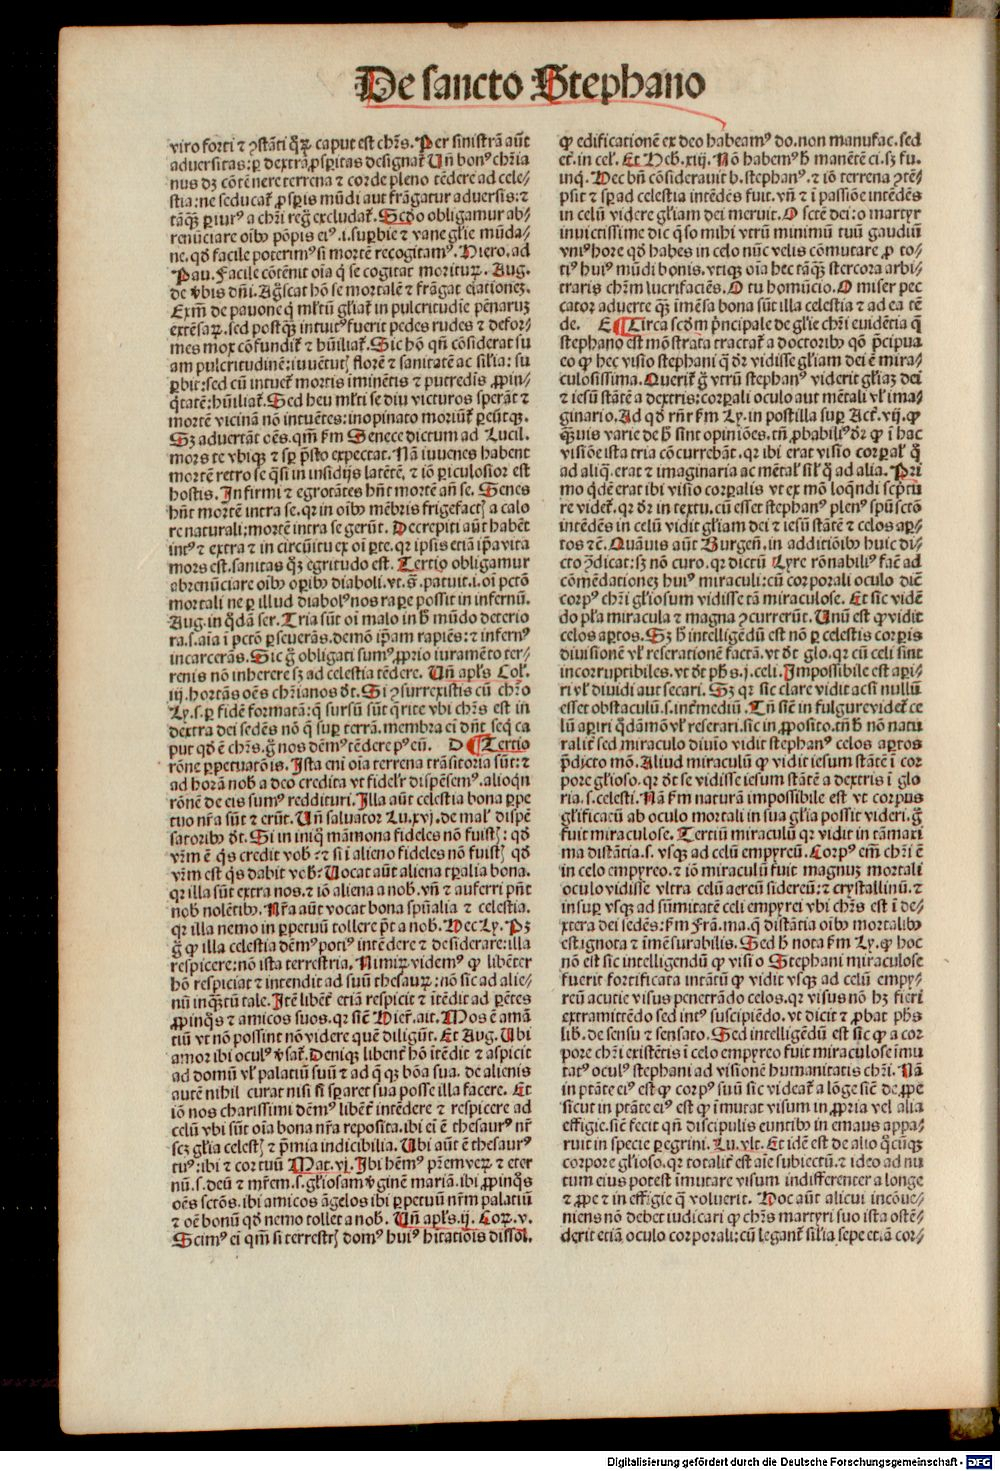 De sancto Stephano
viro forti ⁊ ꝯstāti q̄ꝝ caput est chr̄s. Per sinistrā aūt
aduersitas: ꝑ dextrā ꝓsꝑitas designat᷑ Uñ bonꝰ chr̄ia
nus dꝫ cōtēnere terrena ⁊ corde pleno tēdere ad cele⸗
stia: ne seducat᷑ ꝓsꝑis mūdi aut frāgatur aduersis: ⁊
tāqꝫ ꝑiurꝰ a chr̄i reḡ excludat᷑. Scd̄o obligamur ab⸗
renūciare oībꝰ pōpis eiꝰ .i. suꝑbie ⁊ vane gl̄ie mūda⸗
ne. qd̄ facile poterimꝰ si mortē recogitamꝰ. Hiero. ad
Pau. Facile cōtēnit oīa q̄ se cogitat moriturꝝ. Aug.
de v̄bis dn̄i. Agn̄scat hō se mortalē ⁊ frāgat elationeꝫ.
Exm̄ de pauone q̄ ml̄tū gl̄iat᷑ in pulcritudīe pēnaruꝫ
extēsaꝝ. sed postqꝫ intuitꝰ fuerit pedes rudes ⁊ defor⸗
mes mox cōfundit᷑ ⁊ hūiliat᷑. Sic hō qn̄ cōsiderat su
am pulcritudinē: iuuētutꝭ florē ⁊ sanitatē ac sil̄ia: su
ꝑbit: sed cū intuet᷑ mortis iminētis ⁊ putredīs ꝓpin⸗
q̄tatē: hūiliat᷑. Sed heu ml̄ti se diu victuros sperāt ⁊
mortē vicinā nō intuētes: inopinato moriūt᷑ ꝑeūtqꝫ.
Sꝫ aduertāt oēs. qm̄ ẜm Senece dictum ad Lucil.
mors te vbiqꝫ ⁊ sꝑ p̄sto expectat. Nā iuuenes habent
mortē retro se q̄si in insidijs latētē. ⁊ iō ꝑiculosior est
hostis. Infirmi ⁊ egrotātes hn̄t mortē an̄ se. Senes
hn̄t mortē intra se. qꝛ in oībꝰ mēbris frigefactꝭ a calo
re naturali: mortē intra se gerūt. Decrepiti aūt habēt
intꝰ ⁊ extra ⁊ in circūitu ex oī ꝑte. qꝛ ipsis etiā ip̄a vita
mors est. sanitas qꝫ egritudo est. Tertio obligamur
abrenūciare oībꝰ oꝑibꝰ diaboli. vt .s̄. patuit. i. oī pctō
mortali ne ꝑ illud diabolꝰ nos raꝑe possit in infernū.
Aug. in q̄dā ser. Tria sūt oī malo in h̄ mūdo deterio
ra. s. aīa ī pctō ꝑseuerās. demō ip̄am rapiēs: ⁊ infernꝰ
incarcerās. Sic ḡ obligati sumꝰ ꝓprio iuramēto ter⸗
renis nō inherere sꝫ ad celestia tēdere. Uñ apl̄s Col̄.
iij. hortās oēs chr̄ianos dr̄. Si ꝯsurrexistis cū chr̄o
Ly. s. ꝑ fidē formatā: q̄ sursū sūt q̄rite vbi chr̄s est in
dextra dei sedēs nō q̄ suꝑ terrā. membra ei dn̄t seq̄ ca
put qd̄ ē chr̄s. ḡ nos dēmꝰ tēdere pꝰ eū. D ¶ Tertio
rōne ꝑpetuatōis. Ista eni oīa terrena trāsitoria sūt: ⁊
ad horā nob̄ a deo credita vt fidel̄r dispēsemꝰ. alioqn̄
rōnē de eis sumꝰ reddituri. Illa aūt celestia bona ꝑpe
tuo nr̄a sūt ⁊ erūt. Uñ saluator Lu. xvj. de mal̄ dispē
satoribꝰ dr̄. Si in iniq̄ māmona fideles nō fuistꝭ: qd̄
vr̄m ē q̄s credit vob̄ ⁊ si ī alieno fideles nō fuistꝭ qd̄
vr̄m est q̄s dabit vob̄. Uocat aūt aliena tꝑalia bona.
qꝛ illa sūt extra nos. ⁊ iō aliena a nob̄. vn̄ ⁊ auferri pn̄t
nob̄ nolētibꝰ. Nr̄a aūt vocat bona spūalia ⁊ celestia.
qꝛ illa nemo in ꝑpetuū tollere pt̄ a nob̄. Hec Ly. Pꝫ
ḡ ꝙ illa celestia dēmꝰ potiꝰ intēdere ⁊ desiderare: illa
respicere: nō ista terrestria. Nimiꝝ videmꝰ ꝙ libēter
hō respiciat ⁊ intendit ad suū thesauꝝ: nō sic ad alie⸗
nū inqꝫtū tale. Itē libēt᷑ etiā respicit ⁊ itēdit ad ꝑētes
ꝓpinq̄s ⁊ amicos suos. qꝛ sic̄ Hier̄. ait. Mos ē amā
tiū vt nō possint nō videre quē diligūt. Et Aug. Ubi
amor ibi oculꝰ v̄sat᷑. Deniqꝫ libent᷑ hō itēdit ⁊ aspicit
ad domū vl̄ palatiū suū ⁊ ad q̄ qꝫ bōa sua. de alienis
autē nihil curat nisi si sꝑaret sua posse illa facere. Et
iō nos charissimi dēmꝰ libēt᷑ intēdere ⁊ respicere ad
celū vbi sūt oīa bona nr̄a reposita. ibi ei ē thesaurꝰ nr̄
scꝫ gl̄ia celestꝭ ⁊ p̄mia indicibilia. Ubi aūt ē thesaurꝰ
tuꝰ: ibi ⁊ cor tuū Mat. vj. Ibi hēmꝰ pr̄em veꝝ ⁊ eter
nū. s. deū ⁊ mr̄em. s. gl̄iosam v̄ginē mariā. ibi ꝓpinq̄s
oēs sctōs. ibi amicos āgelos ibi ꝑpetuū nr̄m palatiū
⁊ oē bonū qd̄ nemo tollet a nob̄. Uñ apl̄s. ij. Coꝝ. v.
Scimꝰ ei qm̄ si terrestrꝭ domꝰ huiꝰ hitatiōis dissol.
ꝙ edificationē ex deo habeamꝰ do. non manufac. sed
et̄. in cel̄. Et Heb̄. xiij. Nō habemꝰ h̄ manētē ci. sꝫ fu.
inq̄. Hec bn̄ cōsiderauit b. stephanꝰ. ⁊ iō terrena ꝯtē⸗
psit ⁊ sꝑ ad celestia intēdēs fuit. vn̄ ⁊ ī passiōe intēdēs
in celū videre gl̄iam dei meruit. O sctē dei: o martyr
inuictissime dic q̄so mihi vtrū minimū tuū gaudiū
vniꝰ hore qd̄ habes in celo nūc velis cōmutare ꝓ to⸗
tiꝰ huiꝰ mūdi bonis. vtiqꝫ oīa hec tāqꝫ stercora arbi⸗
traris chr̄m lucrifaciēs. O tu homūcio. O miser pec
cator aduerte qꝫ imēsa bona sūt illa celestia ⁊ ad ea tē
de. E ¶ Circa scd̄m p̄ncipale de gl̄ie chr̄i euidētia q̄
stephano est mōstrata tractat᷑ a doctoribꝰ qō p̄cipua
eo ꝙ hec visio stephani q̄ dr̄ vidisse gl̄iam dei ē mira⸗
culosissima. Querit᷑ ḡ vtrū stephanꝰ viderit gl̄iaꝫ dei
⁊ iesū stātē a dextris: corꝑali oculo aut mētali vl̄ ima⸗
ginario. Ad qd̄ rn̄t ẜm Ly. in postilla suꝑ Act̄. vij. ꝙ
qꝫuis varie de h̄ sint opiniōes. tn̄ ꝓbabiliꝰ dr̄ ꝙ ī hac
visiōe ista tria cōcurrebāt. qꝛ ibi erat visio corꝑal̄ q̄
ad aliq̄. erat ⁊ imaginaria ac mētal̄ sil̄r q̄ ad alia. Pri
mo q̄dē erat ibi visio corꝑalis vt ex mō loqn̄di scpt̄u
re videt᷑. qꝛ dr̄ in textu. cū esset stephanꝰ plenꝰ spū sctō
intēdēs in celū vidit gl̄iam dei ⁊ iesū stātē ⁊ celos aꝑ⸗
tos ⁊ c̄. Quāuis aūt Burgen̄. in additiōibꝰ huic di⸗
cto ꝯ̄dicat: sꝫ nō curo. qꝛ dictū Lyre rōnabil̄r facē ad
cōmēdationeꝫ huiꝰ miraculi: cū corporali oculo dic̄
corpꝰ chr̄i gl̄iosum vidisse tā miraculose. Et sic vidē
do pl̄a miracula ⁊ magna ꝯcurrerūt. Unū est ꝙ vidit
celos aꝑtos. Sꝫ h̄ intelligēdū est nō ꝑ celestis corꝑis
diuisionē vl̄ reserationē factā. vt dr̄ glo. qꝛ cū celi sint
incorruptibiles. vt dr̄ phs̄. j. celi. Impossibile est aꝑi⸗
ri vl̄ diuidi aut secari. Sꝫ qꝛ sic clare vidit acsi nullū
esset obstaculū. s. int̄mediū. Tn̄ sic̄ in fulgure videt᷑ ce
lū aꝑiri q̄dāmō vl̄ reserari. sic in ꝓposito. tn̄ h̄ nō natu
ralit᷑ sed miraculo diuīo vidit stephanꝰ celos aꝑtos
p̄dicto mō. Aliud miraculū ꝙ vidit iesum stātē ī cor
pore gl̄ioso. qꝛ dr̄ se vidisse iesum stātē a dextris ī glo
ria. s. celesti. Nā ẜm naturā impossibile est vt corpus
gl̄ificatū ab oculo mortali in sua gl̄ia possit videri. ḡ
fuit miraculose. Tertiū miraculū qꝛ vidit in tā maxi
ma distātia. s. vsqꝫ ad celū empyreū. Corpꝰ em̄ chr̄i ē
in celo empyreo. ⁊ iō miraculū fuit magnuꝫ mortali
oculo vidisse vltra celū aereū sidereū: ⁊ crystallinū. ⁊
insuꝑ vsqꝫ ad sūmitatē celi empyrei vbi chr̄s est ī de⸗
xtera dei sedēs: ẜm Frā. ma. q̄ distātia oībꝰ mortalibꝰ
est ignota ⁊ imēsurabilis. Sed h̄ nota ẜm Ly. ꝙ hoc
nō est sic intelligendū ꝙ visio Stephani miraculose
fuerit fortificata intātū ꝙ vidit vsqꝫ ad celū empy⸗
reū acutie visus penetrādo celos. qꝛ visus nō hꝫ fieri
extramittēdo sed intꝰ suscipiēdo. vt dicit ⁊ ꝓbat phs̄
lib̄. de sensu ⁊ sensato. Sed intelligēdū est sic ꝙ a cor
pore chr̄i existētis ī celo empyreo fuit miraculose īmu
tatꝰ oculꝰ stephani ad visionē humanitatis chr̄i. Nā
in ptāte eiꝰ est ꝙ corpꝰ suū sic videat᷑ a lōge sic̄ de ꝓpe
sicut in ptāte eiꝰ est ꝙ īmutat visum in ꝓpria vel alia
effigie. sic̄ fecit qn̄ discipulis euntibꝰ in emaus appa⸗
ruit in specie ꝑegrini. Lu. vlt. Et idē est de alio q̄cūqꝫ
corpore gl̄ioso. qꝛ totalit᷑ est aīe subiectū. ⁊ ideo ad nu
tum eius potest īmutare visum indifferenter a longe
⁊ ꝓpe ⁊ in effigie q̄ voluerit. Hoc aūt alicui incōue⸗
niens nō debet iudicari ꝙ chr̄s martyri suo ista ostē⸗
derit etiā oculo corporali: cū legant᷑ sil̄ia sepe etiā cor⸗
Digitalisierung gefördert durch die Deutsche Forschungsgemeinschaft - DFG